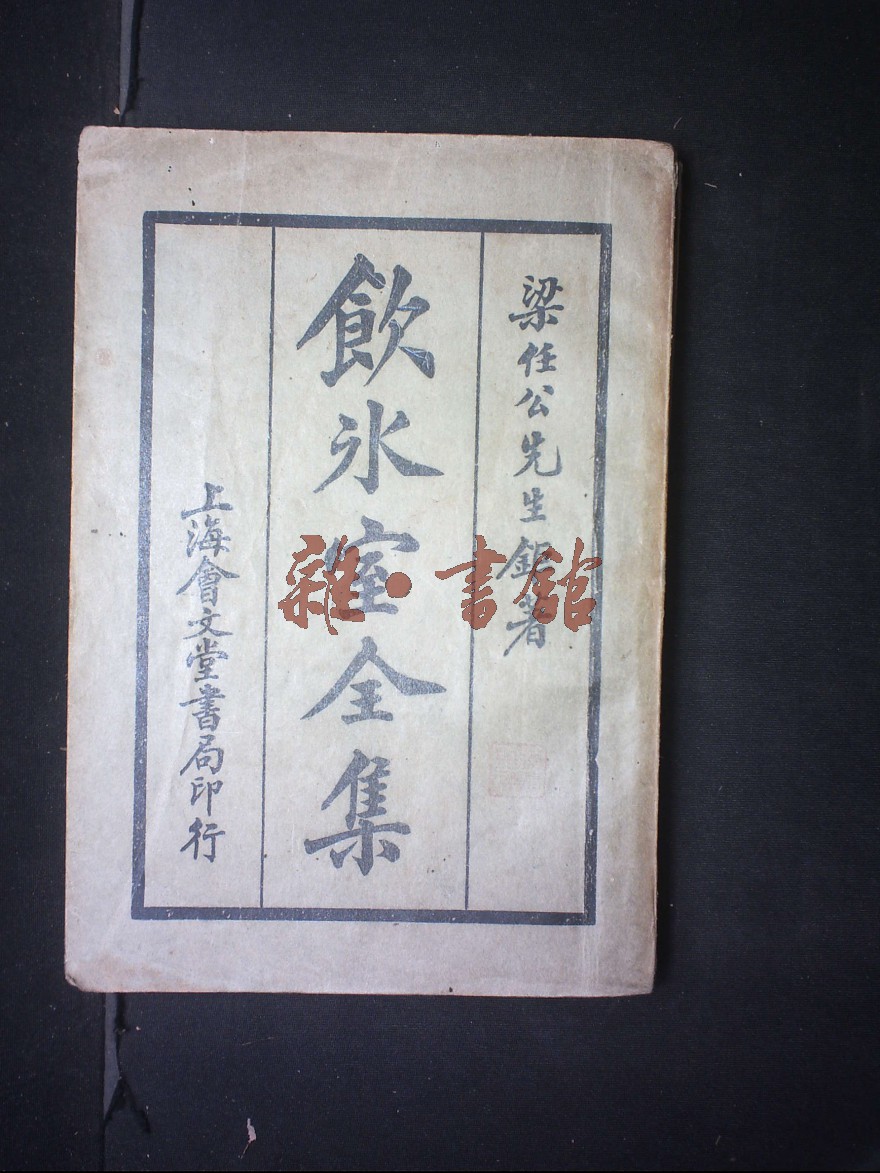 梁任公先生鉅著
飲氷室全集
上海會文堂書局印行
雜·書舘